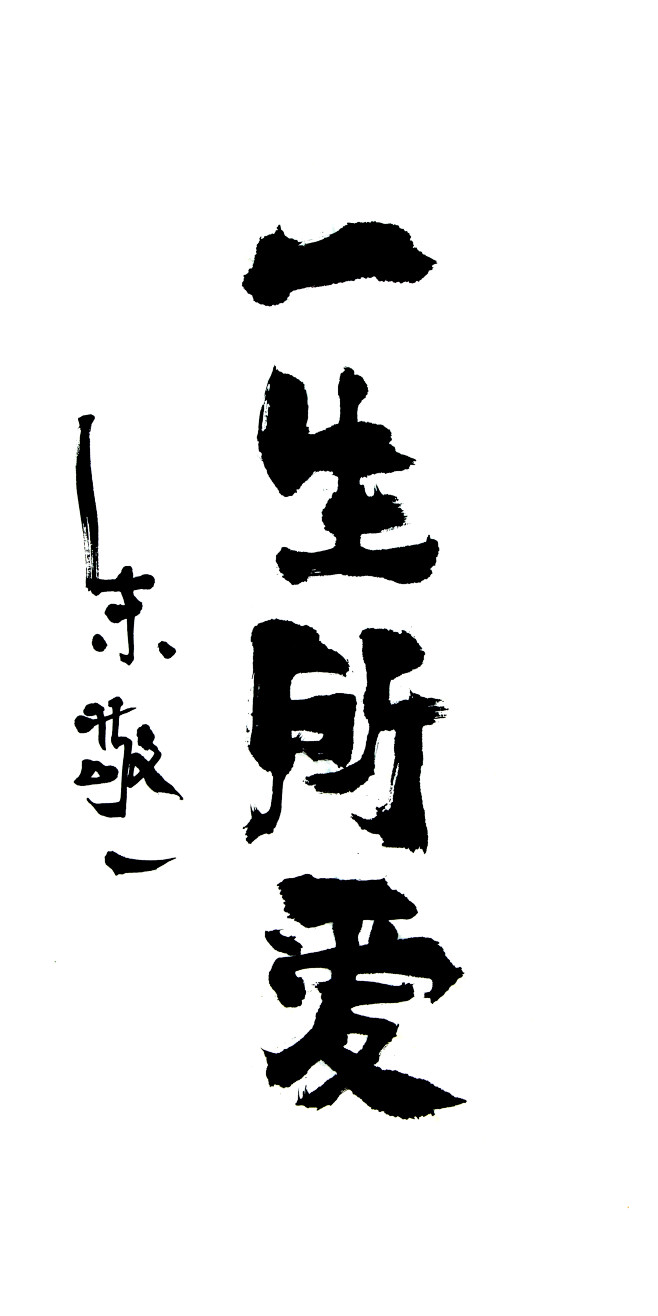 一生所爱
朱敬一